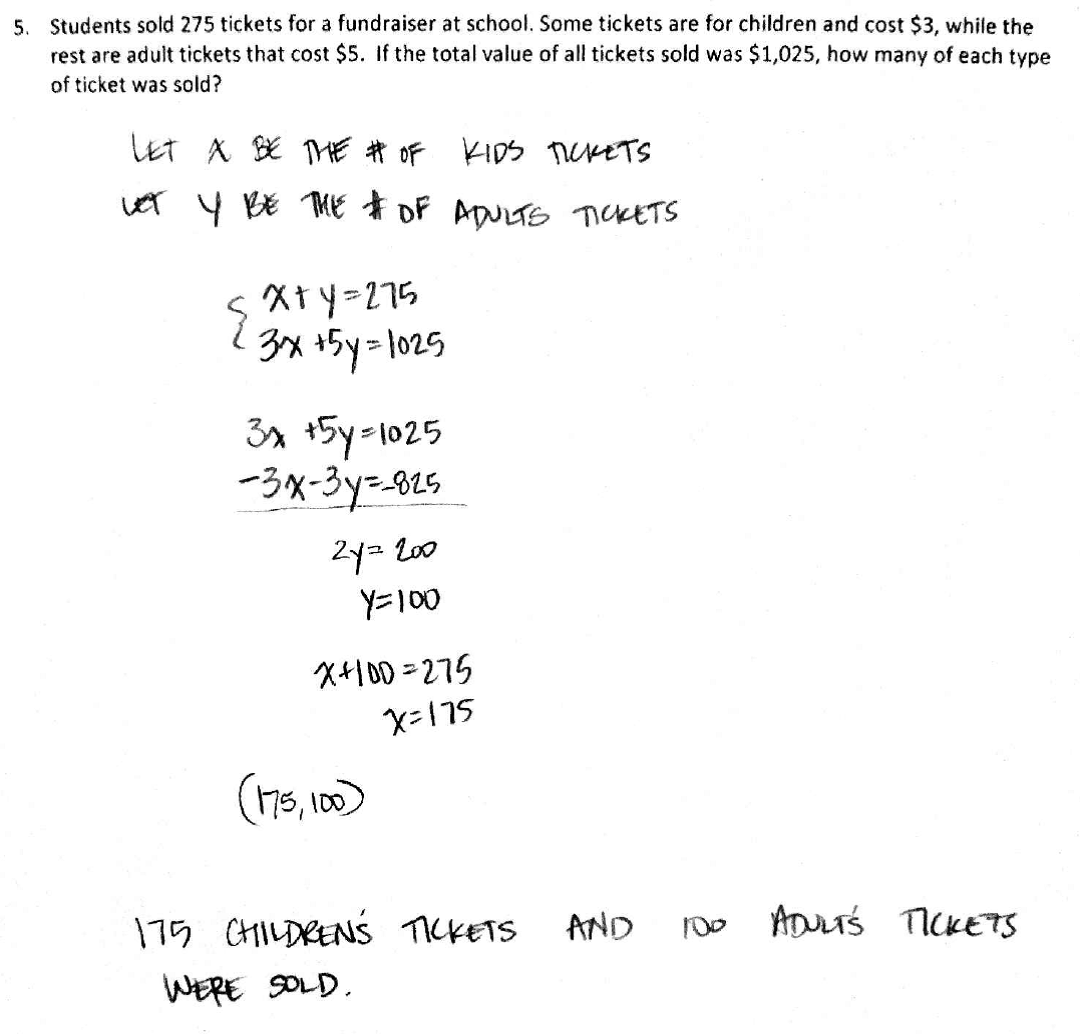 5. Students sold 275 tickets for a fundraiser at school. Some tickets are for children and cost $3, while the
rest are adult tickets that cost $5. If the total value of all tickets sold was $1,025, how many of each type
of ticket was sold?
LET X BE THE # OF KIDS TICKETS
LET Y BE THE # OF ADULTS TICKETS
{ x+y=275
3x+5y=1025
3x+5y=1025
-3x-3y=-825
2y=200
y=100
x+100=275
x=175
(175,100)
175 CHILDREN'S TICKETS AND 100 ADULT'S TICKETS
WERE SOLD.